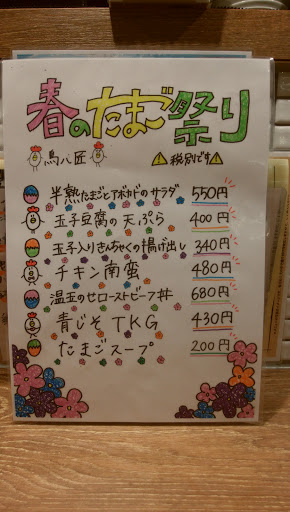 春のたまご祭り
鳥八匠 ⚠税別です⚠
半熟たまごとアボカドのサラダ 550円
玉子豆腐の天ぷら 400円
玉子入りきんちゃくの揚げ出し 340円
チキン南蛮 480円
温玉のせローストビーフ丼 680円
青じそTKG 430円
たまごスープ 200円